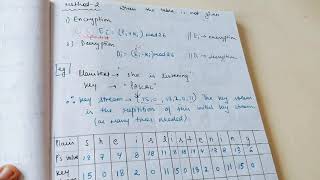 Method-2 when the table is not given
1) Encryption
Ei = (Pi + Ki) mod 26
2) Decryption
Di = (Ei - Ki) mod 26
Eg
Plaintext → she is listening
Key → "PASCAL"
∴ Key stream → (15, 0, 18, 2, 0, 11) The key stream
is the repitition of this initial key stream
(as many times needed)
Plain s h e i s l i s t e n i n g
P's value 18 7 4 8 18 11 8 18 19 4 13 8 13 6
Key 15 0 18 2 0 11 15 0 18 2 0 11 15 0